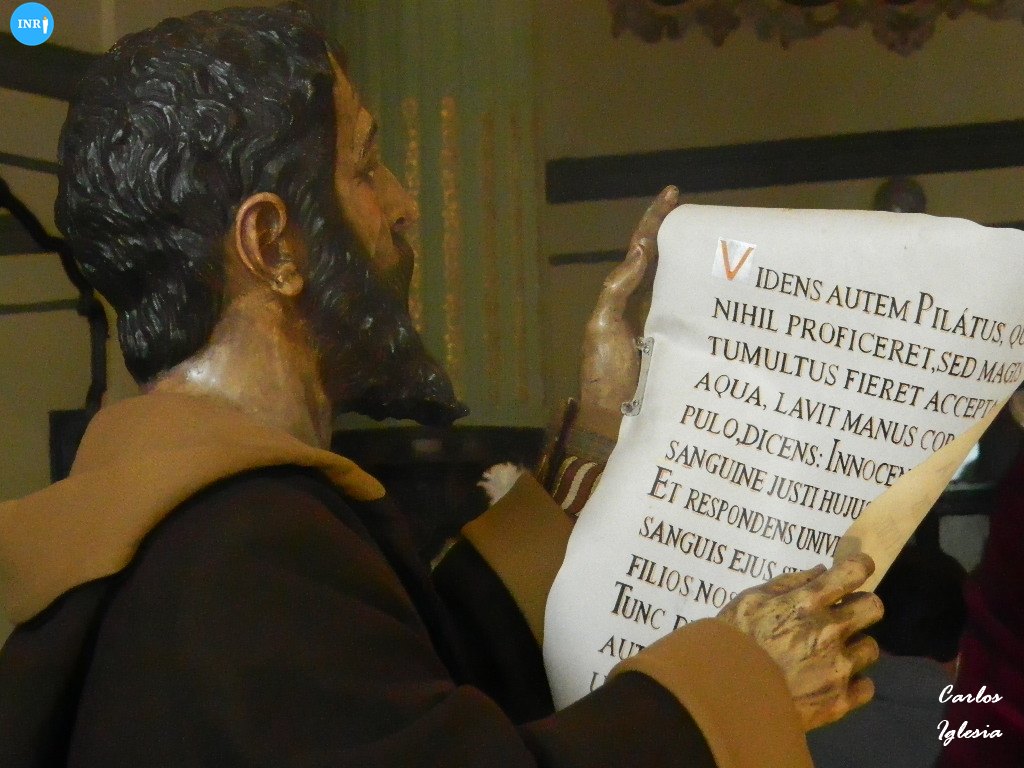 INRI
VIDENS AUTEM PILÁTUS,
NIHIL PROFICERET, SED MAGIS
TUMULTUS FIERET ACCEPTA
AQUA, LAVIT MANUS COR
PULO, DICENS: INNOCEN
SANGUINE JUSTI HUJU
ET RESPONDENS UNIV
SANGUIS EJUS
FILIOS NOS
TUNC
AUT
Carlos
Iglesia